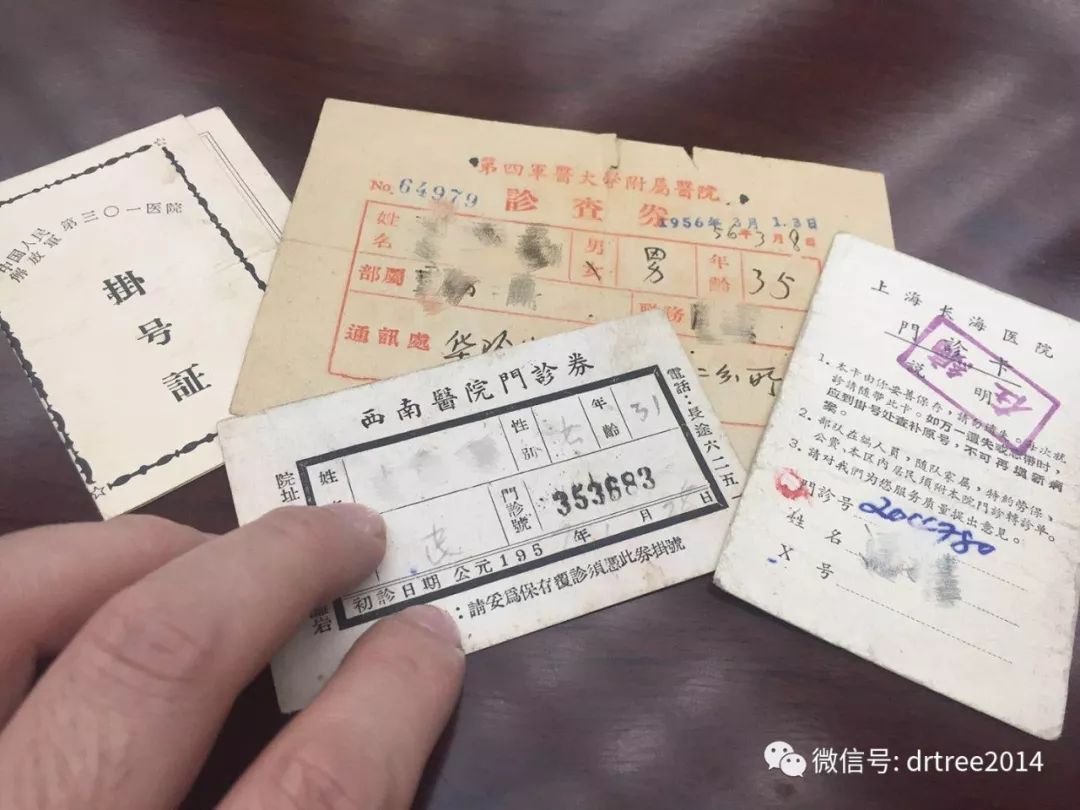 中国人民
解放軍第三〇一医院
掛号証
第四軍醫大學附属醫院
No. 64979
診查券
1956年3月13日
56年3月8日
姓名
男
女
男
年齡
35
部屬
職務
通訊處
西南醫院門診券
電話：長途六二五
院址
姓
性別
女
年齡
31
門診號
353683
初診日期 公元195 年 月 日
：請妥爲保存覆診須憑此券掛號
上海长海医院
門診卡
説明
1. 本卡由你妥善保存，請勿遺失。每次就
診請随带此卡。如万一遺失或忘带时，
应到掛号处查补原号，不可再填新病
案。
2. 部队在編人員，随队家属，特約勞保、
公費，本区内居民須附本院門診轉診单。
3. 請对我們为您服务质量提出意見。
門診号
姓名
X号
微信号: drtree2014